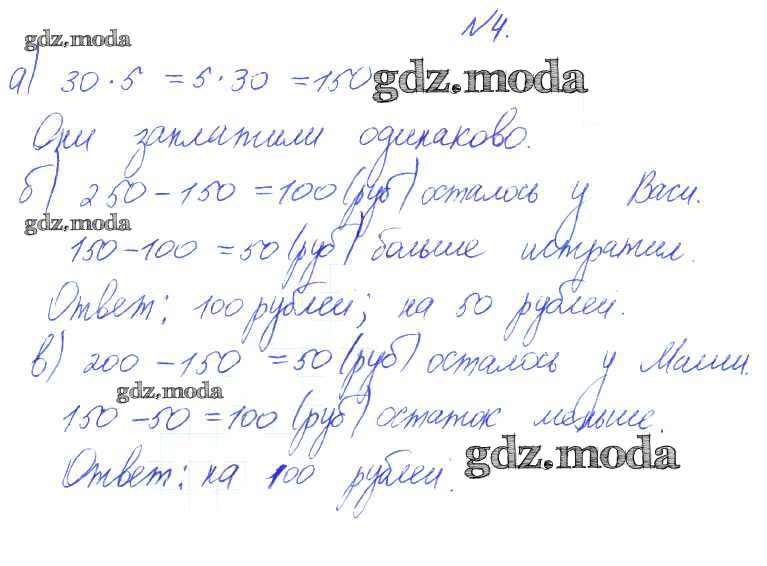 №4.
gdz.moda
а) 30 · 5 = 5 · 30 = 150
gdz.moda
Они заплатили одинаково.
б) 250 - 150 = 100 (руб) осталось у Васи.
gdz.moda
150 - 100 = 50 (руб) больше истратил.
Ответ: 100 рублей; на 50 рублей.
в) 200 - 150 = 50 (руб) осталось у Маши.
gdz.moda
150 - 50 = 100 (руб) остаток меньше.
gdz.moda
Ответ: на 100 рублей.